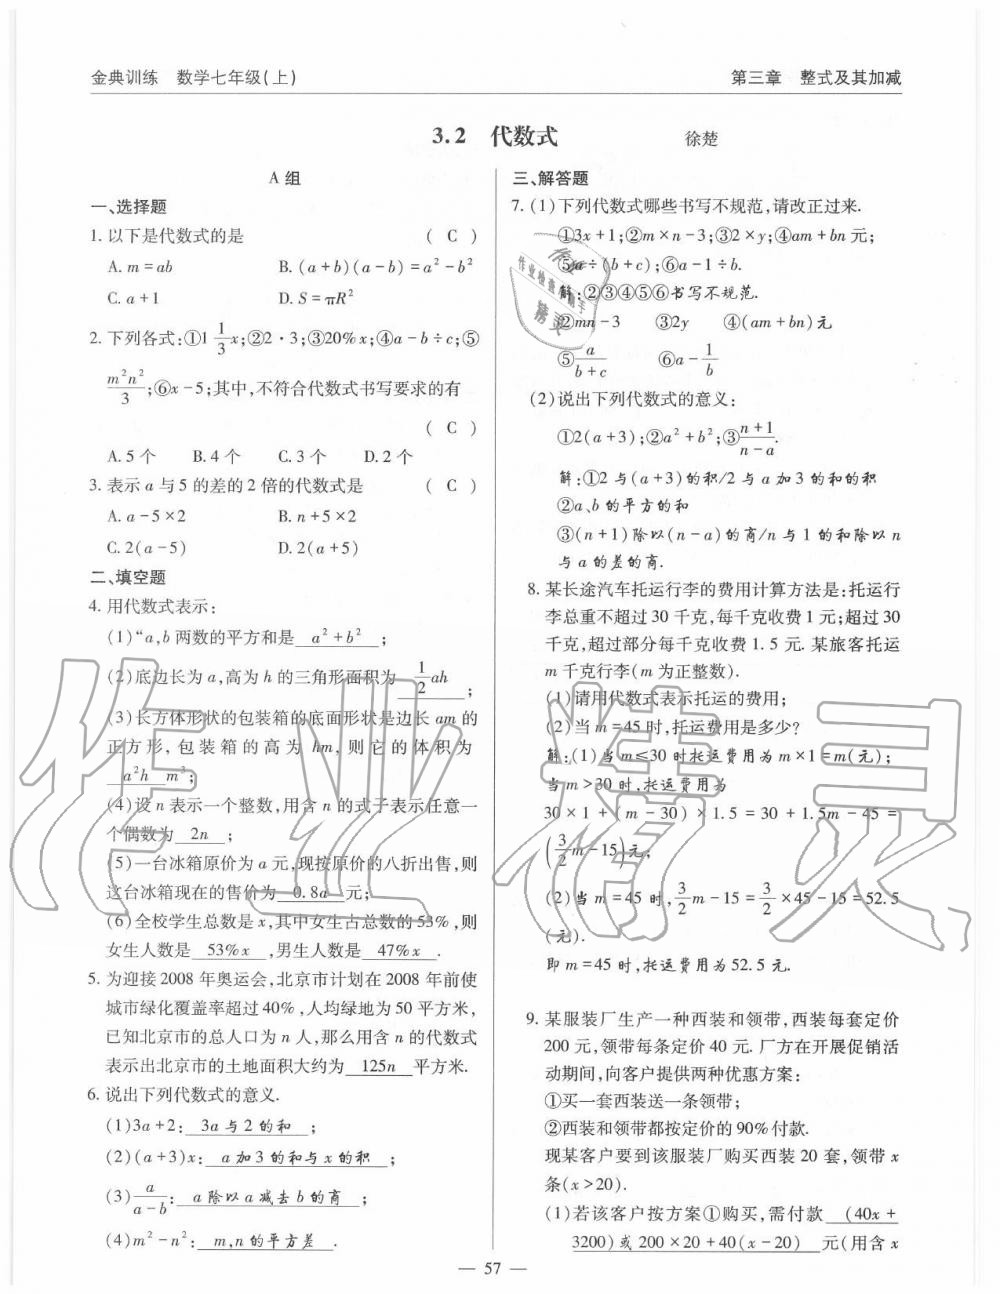 金典训练　数学七年级(上)
第三章　整式及其加减
3.2　代数式
徐楚
A组
一、选择题
1. 以下是代数式的是 ( C )
A. m=ab B. (a+b)(a-b)=a²-b²
C. a+1 D. S=πR²
2. 下列各式:①1 1/3 x;②2·3;③20%x;④a-b÷c;⑤
m²n²/3;⑥x-5;其中,不符合代数式书写要求的有
( C )
A.5个 B.4个 C.3个 D.2个
3. 表示a与5的差的2倍的代数式是 ( C )
A. a-5×2 B. n+5×2
C. 2(a-5) D. 2(a+5)
二、填空题
4. 用代数式表示:
(1)“a,b两数的平方和是 a²+b² ;
(2)底边长为a,高为h的三角形面积为 1/2 ah ;
(3)长方体形状的包装箱的底面形状是边长am的
正方形,包装箱的高为hm,则它的体积为
a²h m³;
(4)设n表示一个整数,用含n的式子表示任意一
个偶数为 2n ;
(5)一台冰箱原价为a元,现按原价的八折出售,则
这台冰箱现在的售价为 0.8a 元;
(6)全校学生总数是x,其中女生占总数的53%,则
女生人数是 53%x ,男生人数是 47%x .
5. 为迎接2008年奥运会,北京市计划在2008年前使
城市绿化覆盖率超过40%,人均绿地为50平方米,
已知北京市的总人口为n人,那么用含n的代数式
表示出北京市的土地面积大约为 125n 平方米.
6. 说出下列代数式的意义.
(1)3a+2: 3a与2的和 ;
(2)(a+3)x: a加3的和与x的积 ;
(3)a/(a-b): a除以a减去b的商 ;
(4)m²-n²: m,n的平方差 .
三、解答题
7. (1)下列代数式哪些书写不规范,请改正过来.
①3x+1;②m×n-3;③2×y;④am+bn元;
⑤a÷(b+c);⑥a-1÷b.
解:②③④⑤⑥书写不规范.
②mn-3 ③2y ④(am+bn)元
⑤a/(b+c) ⑥a-1/b
(2)说出下列代数式的意义:
①2(a+3);②a²+b²;③(n+1)/(n-a).
解:①2与(a+3)的积/2与a加3的和的积
②a、b的平方的和
③(n+1)除以(n-a)的商/n与1的和除以n
与a的差的商.
8. 某长途汽车托运行李的费用计算方法是:托运行
李总重不超过30千克,每千克收费1元;超过30
千克,超过部分每千克收费1.5元.某旅客托运
m千克行李(m为正整数).
(1)请用代数式表示托运的费用;
(2)当m=45时,托运费用是多少?
解:(1)当m≤30时托运费用为m×1=m(元);
当m>30时,托运费用为
30×1+(m-30)×1.5=30+1.5m-45=
(3/2 m-15)元;
(2)当m=45时,3/2 m-15=3/2×45-15=52.5
(元).
即m=45时,托运费用为52.5元.
9. 某服装厂生产一种西装和领带,西装每套定价
200元,领带每条定价40元.厂方在开展促销活
动期间,向客户提供两种优惠方案:
①买一套西装送一条领带;
②西装和领带都按定价的90%付款.
现某客户要到该服装厂购买西装20套,领带x
条(x>20).
(1)若该客户按方案①购买,需付款 (40x+
3200)或200×20+40(x-20) 元(用含x
— 57 —
作业精灵